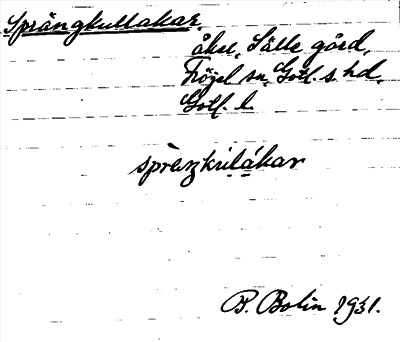 Sprängkullakar,
åker, Sälle gård,
Fröjel sn, Gotl. s. hd,
Gotl. l.
B. Bolin 1931.